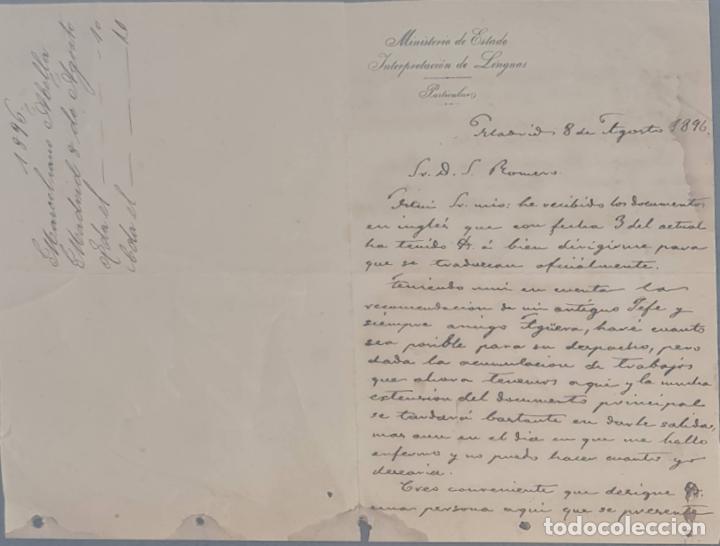 1896.
Marcelino Abella
Madrid 8 de Agosto
Rda. el — — — 10
Cda. el — — — 10
Ministerio de Estado
Interpretación de Lenguas
Particular
Madrid 8 de Agosto 1896.
Sr. D. S. Romero.
Mui Sr. mio: he recibido los documentos
en inglés que con fecha 3 del actual
ha tenido V. á bien dirigirme para
que se traduzcan oficialmente.
Teniendo mui en cuenta la
recomendacion de mi antiguo Jefe y
siempre amigo Agüera, haré cuanto
sea posible para su despacho, pero
dada la acumulacion de trabajos
que ahora tenemos aqui y la mucha
extension del documento principal
se tardará bastante en darle salida,
mas aun en el dia en que me hallo
enfermo y no puedo hacer cuanto yo
desearia.
Creo conveniente que designe V.
una persona aqui que se presente
todocoleccion.net